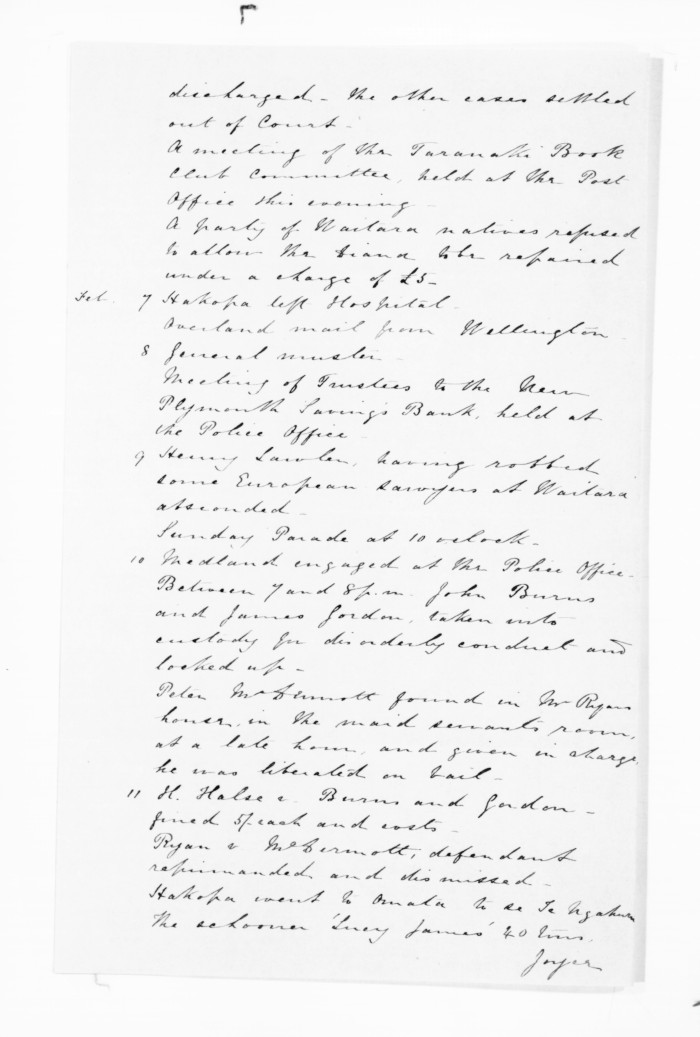 discharged – the other cases settled
out of Court –
A meeting of the Taranaki Book
Club Committee, held at the Post
Office this evening –
A party of Waitara natives refused
to allow the Diana to be repaired
under a charge of £5 –
Feb. 7 Hakopa left Hospital –
Overland mail from Wellington –
8 General muster –
Meeting of Trustees to the New
Plymouth Savings Bank, held at
the Police Office –
9 Henry Lawler, having robbed
some European sawyers at Waitara
absconded –
Sunday Parade at 10 oclock –
10 Medland engaged at the Police Office –
Between 7 and 8 p.m. John Burns
and James Gordon, taken into
custody for disorderly conduct and
locked up –
Peter McDermott found in Mr Ryans
house, in the maid servants room,
at a late hour, and given in charge,
he was liberated on bail –
11 H. Halse v. Burns and Gordon –
fined 5/- each and costs –
Ryan v McDermott, defendant
reprimanded and dismissed –
Hakopa went to Omata to se Te Ngahuru
The schooner 'Lucy James' 40 tons,
Joyce